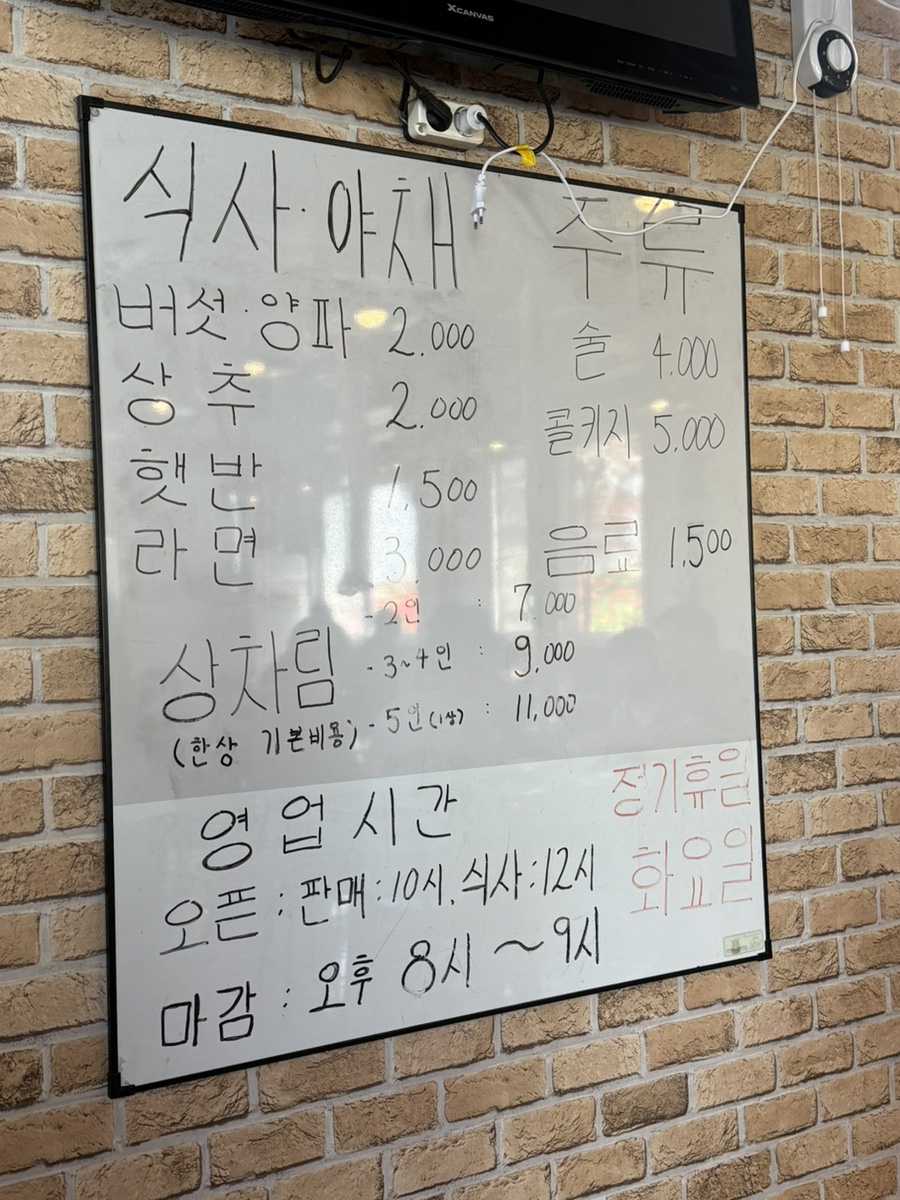 XCANVAS
식사·야채
버섯·양파 2.000
상추 2.000
햇반 1.500
라면 3.000
주류
술 4.000
콜키지 5.000
음료 1.500
상차림
(한상 기본비용)
- 2인 : 7.000
- 3~4인 : 9.000
- 5인(1상) : 11,000
영업시간
오픈 : 판매:10시. 식사:12시
마감 : 오후 8시 ~ 9시
정기휴일
화요일